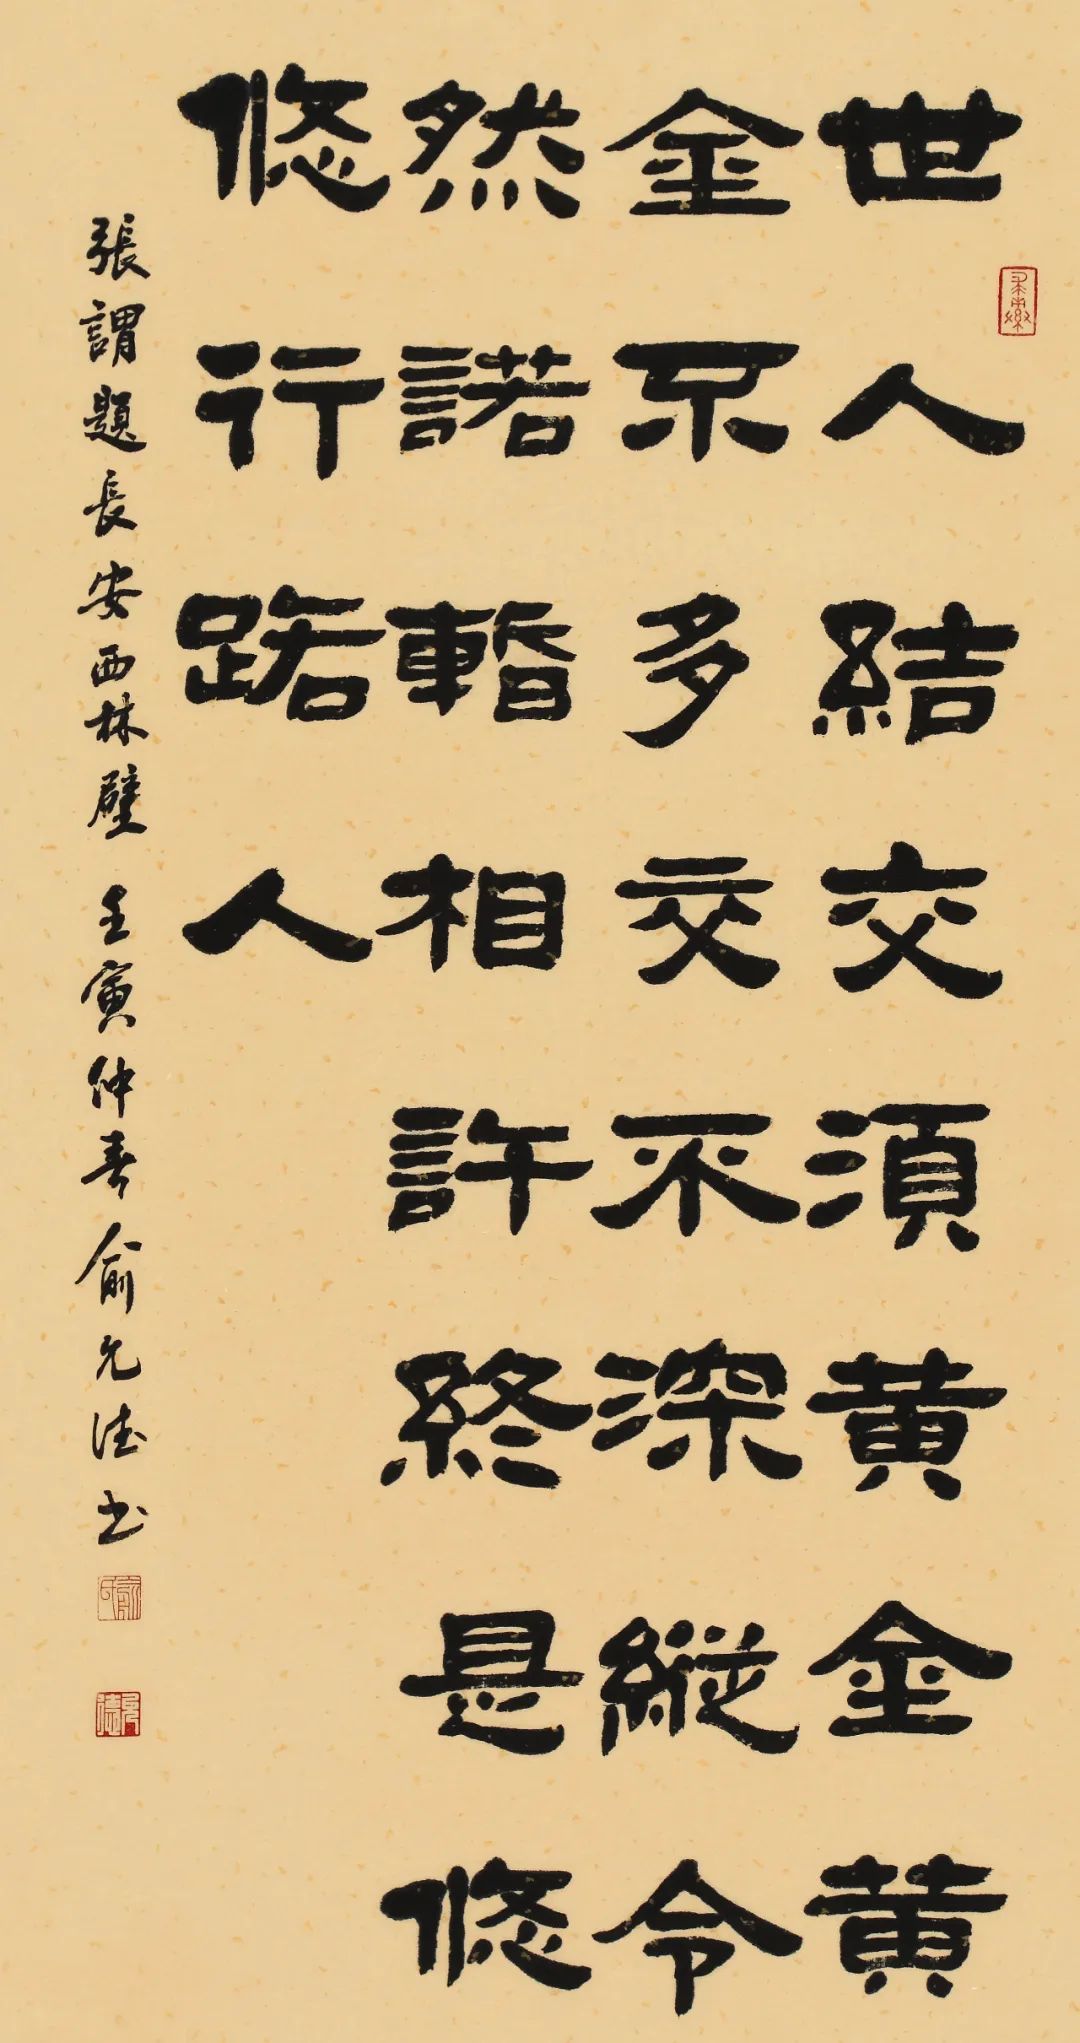 世人結交須黄金黄
金不多交不深縱令
然諾暫相許終是悠
悠行路人
張謂題長安西林壁 壬寅仲春俞允德书